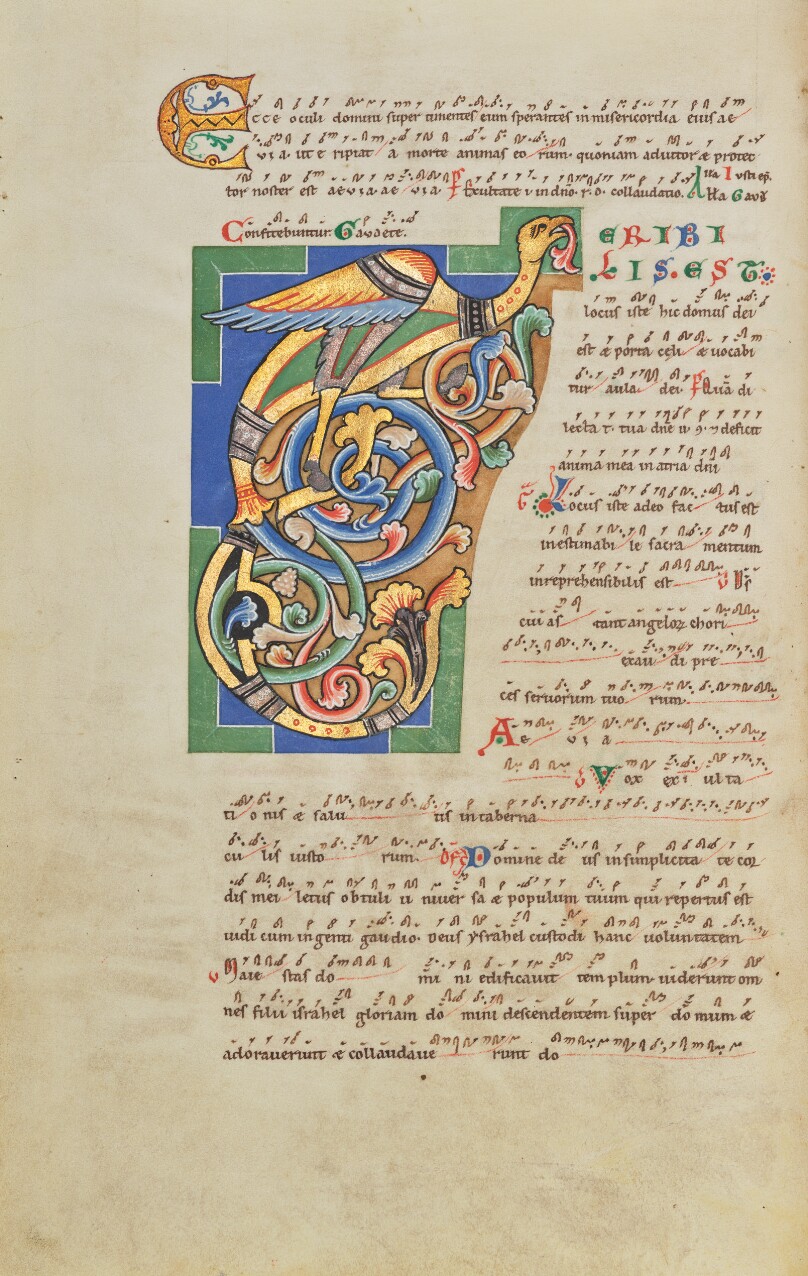 Ecce oculi domini super timentes eum sperantes in misericordia eius ae
v ı a. ut eripiat a morte animas eorum quoniam adiutor æ protec
tor noster est aevıa. ae vıa. Exultate in dno. collaudatio. Alla Iusti ep.
Confitebuntur. Gaudete. Alla Gaud
TERIBI
LIS. EST
locus iste hic domus dei
est æ porta celi æ vocabi
tur aula dei. Qua di
lecta tua dne deficit
anima mea in atria dni
Locus iste adeo factus est
inestimabile sacramentum
inreprehensibilis est
cui astant angeloꝝ chori
exaudi pre
ces servorum tuorum.
Ae vıa
Vox exulta
tionis æ salutis in taberna
culis iustorum. Domine deus in simplicitate coꝝ
dis mei letus obtuli universa æ populum tuum qui repertus est
vidi cum ingenti gaudio. Deus ysrahel custodi hanc voluntatem
Maiestas domini edificavit templum viderunt om
nes filii israhel gloriam domini descendentem super domum æ
adoraverunt æ collaudaverunt do